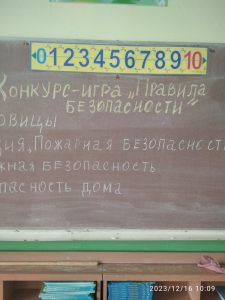 0 1 2 3 4 5 6 7 8 9 10
Конкурс-игра „Правила
безопасности"
овицы
ция„Пожарная безопасност
жная безопасность
пасность дома
2023/12/16 10:09